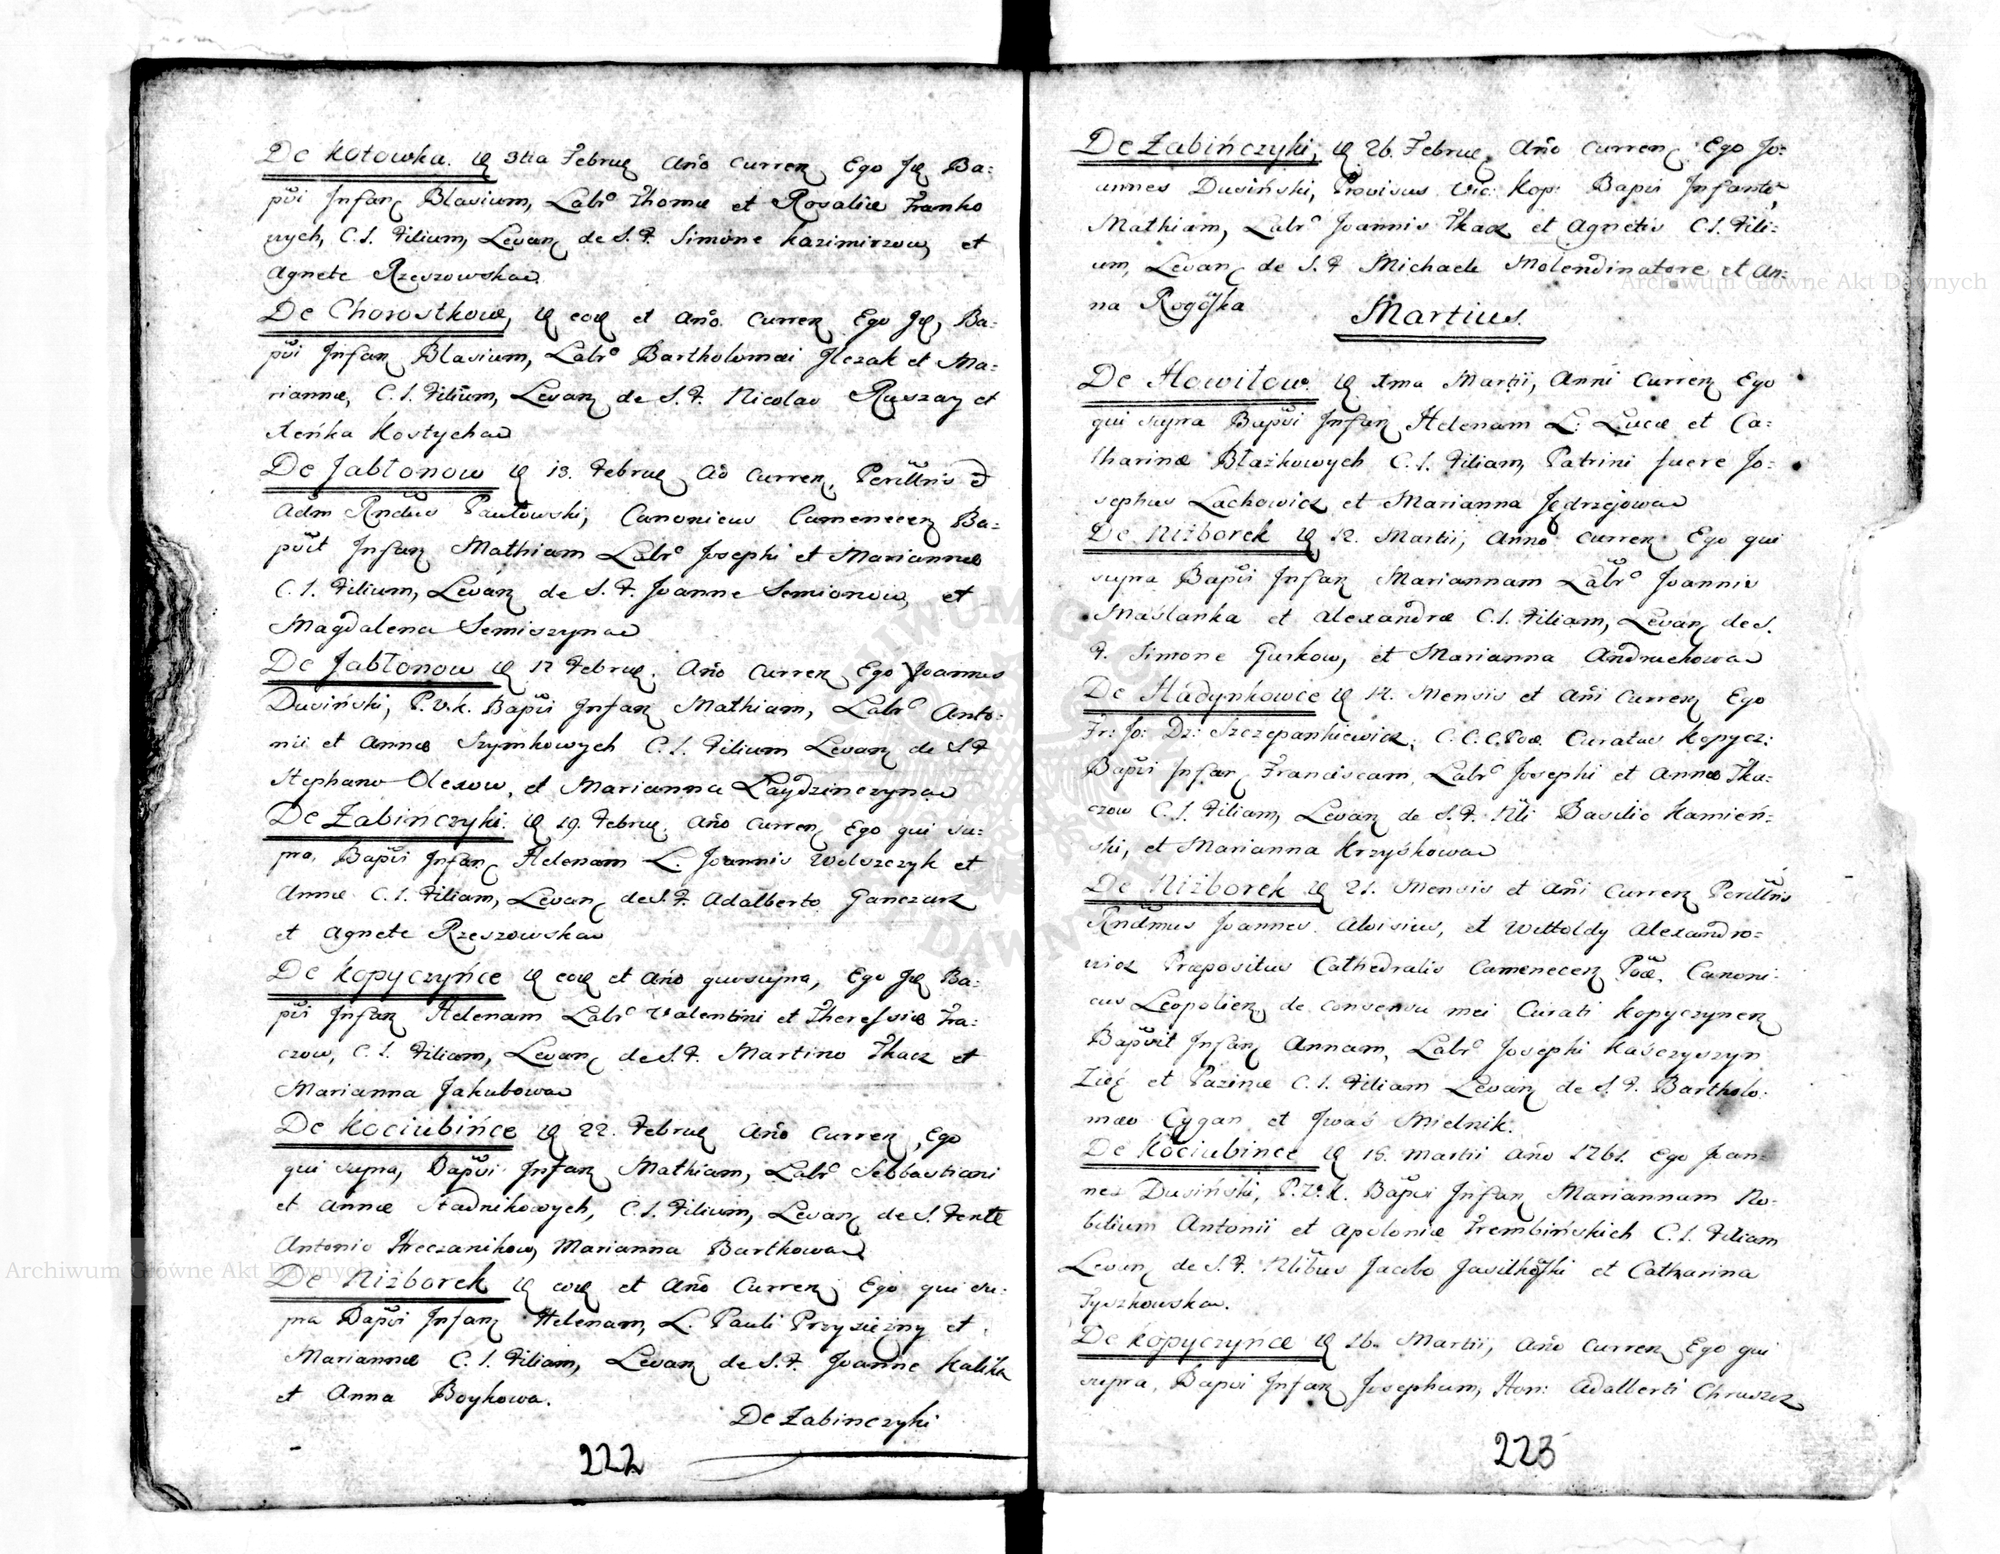 De Kotowka. Die 3tia Februar Año Curren Ego Jd. Ba=
pvi Infan Blasium, Labr° Thomæ et Rosaliæ Franko
wych, C. L. Filium, Levan de S. F. Simone Kazimirzow, et
Agnete Rzeszowska
De Chorostkow, Die eod et Año. Curren Ego Jd, Ba=
pvi Infan Blasium, Labr° Bartholomæi Ilczak et Ma=
riannæ, C. L. Filium, Levan de S. F. Nicolao Ruszay et
Xeńka Kostycha
De Jabłonow Die 13. Februar Ao Curren, Perillris D
Adm Rndus Pawłowski, Canonicus Camenecen Ba=
pvit Infan Mathiam Labr° Josephi et Mariannæ
C. L. Filium, Levan de S. F. Joanne Semionow, et
Magdalena Semiszyna
De Jabłonow Die 17 Februar. Año Curren Ego Joannes
Dusiński, P. V. K. Bapvi Infan Mathiam, Labr° Anto=
nii et Annæ Szymkowych C. L. Filium Levan de S F
Stephano Olexow, et Marianna Łaydzinczyna
De Zabińczyki. Die 19. Februar. Año Curren Ego qui su=
pra, Bapvi Infan Helenam L. Joannis Woloszczyk et
Annæ C. L. Filiam, Levan de S. F. Adalberto Ganczarz
et Agnete Rzeszowska
De Kopyczyńce Die eod et Año quo supra, Ego Jd Ba=
pvi Infan Helenam Labr° Valentini et Theressiæ Tka=
czow, C. L. Filiam, Levan de S. F. Martino Tkacz et
Marianna Jakubowa
De Kociubińce Die 22. Februar Año Curren, Ego
qui supra, Bapvi Infan Mathiam, Labr° Sebbastiani
et Annæ Stadnikowych, C. L. Filium, Levan de S. Fente
Antonio Hreczanikow, Marianna Bartkowa
De Niżborek Die eod et Año Curren Ego qui su=
pra Bapvi Infan Helenam, L. Pauli Przysiężny et
Mariannæ C. L. Filiam, Levan de S. F. Joanne Kalika
et Anna Boykowa.
De Zabinczyki
222
De Zabińczyki, Die 26. Februar, Año Curren Ego Jo=
annes Dusiński, Provisus Vic: Kop: Bapvi Infante
Mathiam, Labr° Joannis Tkacz et Agnetis C. L. Fili=
um, Levan de S. F Michaele Molendinatore et An=
na Rogoſka
Martius.
De Howiłow. Die 1ma Martii, Anni Curren Ego
qui supra Bapvi Infan Helenam L: Lucæ et Ca=
tharinæ Błażkowych C. L. Filiam, Patrini fuere Jo=
sephus Lachowicz et Marianna Jędrzejowa
De Niżborek Die 12. Martii, Anno Curren Ego qui
supra Bapvi Infan Mariannam Labr° Joannis
Maślanka et Alexandræ C. L. Filiam, Levan de S.
F. Simone Gurkow, et Marianna Andruchowa
De Hadynkowce Die 14. Mensis et Añi Curren Ego
Fr: Jo: Dz: Szczepankiewicz, C. C. C. Pod. Curatus Kopycz:
Bapvi Infan Franciscam, Labr° Josephi et Annæ Tka=
czow C. L. Filiam, Levan de S. F. Nli Basilio Kamień=
ski, et Marianna Krzyśkowa
De Niżborek Die 21. Mensis et Añi Curren Perillris
Rndmus Joannes Aloisius, et Wittoldy Alexandro=
wicz Præpositus Cathedralis Camenecen Pod. Canoni=
cus Leopolien de consensu mei Curati Kopyczynen
Bapvit Infan Annam, Labr° Josephi Kaśczyszyn
Zięć et Pazinæ C. L. Filiam Levan de S. F. Bartholo=
mæo Cygan et Jwaś Mielnik.
De Kociubince Die 15. Martii Año 1761. Ego Joan=
nes Dusiński, P. V. K. Bapvi Infan Mariannam No=
bilium Antonii et Apoloniæ Trembińskich C. L. Filiam
Levan de S. F. Nlibus Jacobo Jasilkoſki et Catharina
Tyszkowska.
De Kopyczynce Die 26. Martii, Año Curren Ego qui
supra, Bapvi Infan Josephum, Hon: Adalberti Chruszcz
223
Archiwum Główne Akt Dawnych
Archiwum Główne Akt Dawnych